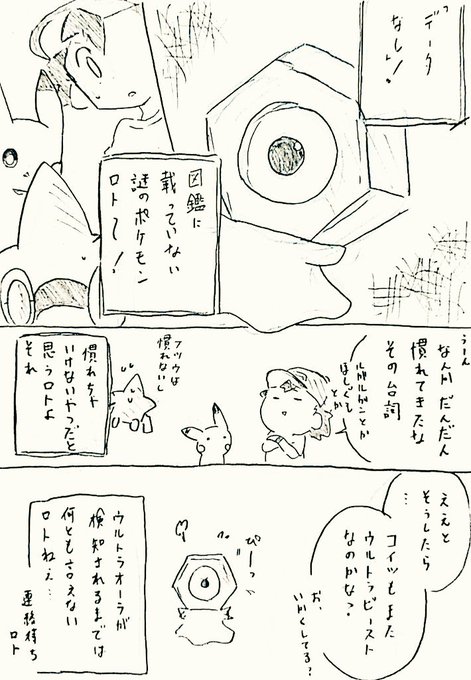 データ
なし!
図鑑に
載っていない
謎のポケモン
ロト〜!
うーん
なんか だんだん
慣れてきたな
その台詞
ルガルガンとか
ほしぐも
とか
フツウは
慣れないし
慣れちゃ
いけないやつだと
思うロトよ
それ
ええと
そうしたら
…
コイツもまた
ウルトラビースト
なのかな?
お、
いかくしてる?
ぴーっ
ウルトラオーラが
検知されるまでは
何とも言えない
ロトねぇ…
連絡待ち
ロト